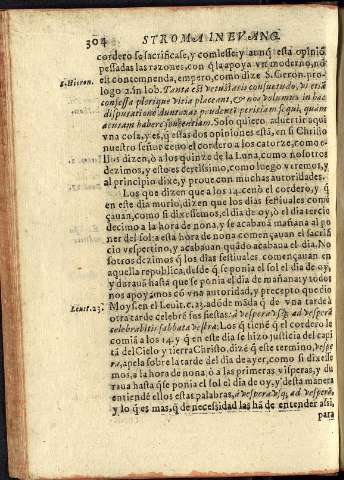 304 STROMA IN EVANG.
cordero se sacrificase, y comiesse: y aunq̃ esta opiniõ
pessadas las razones, con q̃ la apoya vn moderno, nõ
est contemnenda, empero, como dize S. Geron. pro-
S. Hieron.
logo 2. in Iob. Tanta est vetustatis consuetudo, vt etiã
confessa plerique vitia placeant, & nos volumus in hac
disputatione
acutam habere consentiam. Solo quiero aduertir aqui
vna cosa, y es, q̃ estas dos opiniones estã, en si Christo
nuestro señor ceno el cordero a los catorze, como e-
llos dizen, ò a los quinze de la Luna, como nosotros
dezimos, y esto es certissimo, como luego veremos, y
al principio dixe, y proue con muchas autoridades.
Los que dizen que a los 14. cenò el cordero, y q̃
en este dia murio, dizen que los dias festiuales come
çauan, como si dixessemos, el dia de oy, ò el tercio
decimo a la hora de nona, y se acabauã mañana al po
ner del sol: a esta hora de nona començauan el sacrifi
cio vespertino, y acabauan quãdo acababa el dia. No
sotros dezimos q̃ los dias festiuales començauan en
aquella republica, desde q̃ se ponia el sol el dia de oy,
y durauã hasta que se ponia el dia de mañana: y todos
nos apoyamos cõ vna autoridad, y precepto que dio
Leuit. 23.
Moysen en el Leuit. c. 23. adõde mãda q̃ de vna tarde à
otra tarde celebrẽ sus fiestas: à vespera vsq; ad vesperã
celebrabitis sabbata vestra: Los q̃ tienẽ q̃ el cordero se
comiã a los 14. y q̃ en este dia se hizo justicia del capi
tã del Cielo y tierra Christo, dizẽ q̃ este termino, vespe
ra, apela sobre la tarde del dia de ayer, como si dixesse
mos, a la hora de nona, ò a las primeras visperas, y du
raua hasta que se ponia el sol el dia de oy, y desta manera
entiende ellos estas palabras, à vespera vsq; ad vesperã,
y lo q̃ es mas, q̃ de necessidad las hã de entender assi,
para